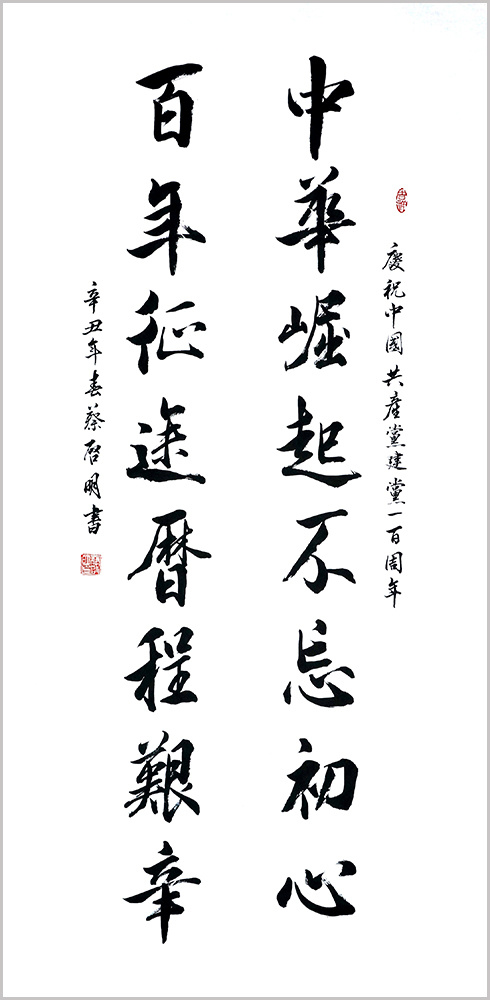 慶祝中國共產黨建黨一百周年
中華崛起不忘初心
百年征途曆程艱辛
辛丑年春蔡启明書